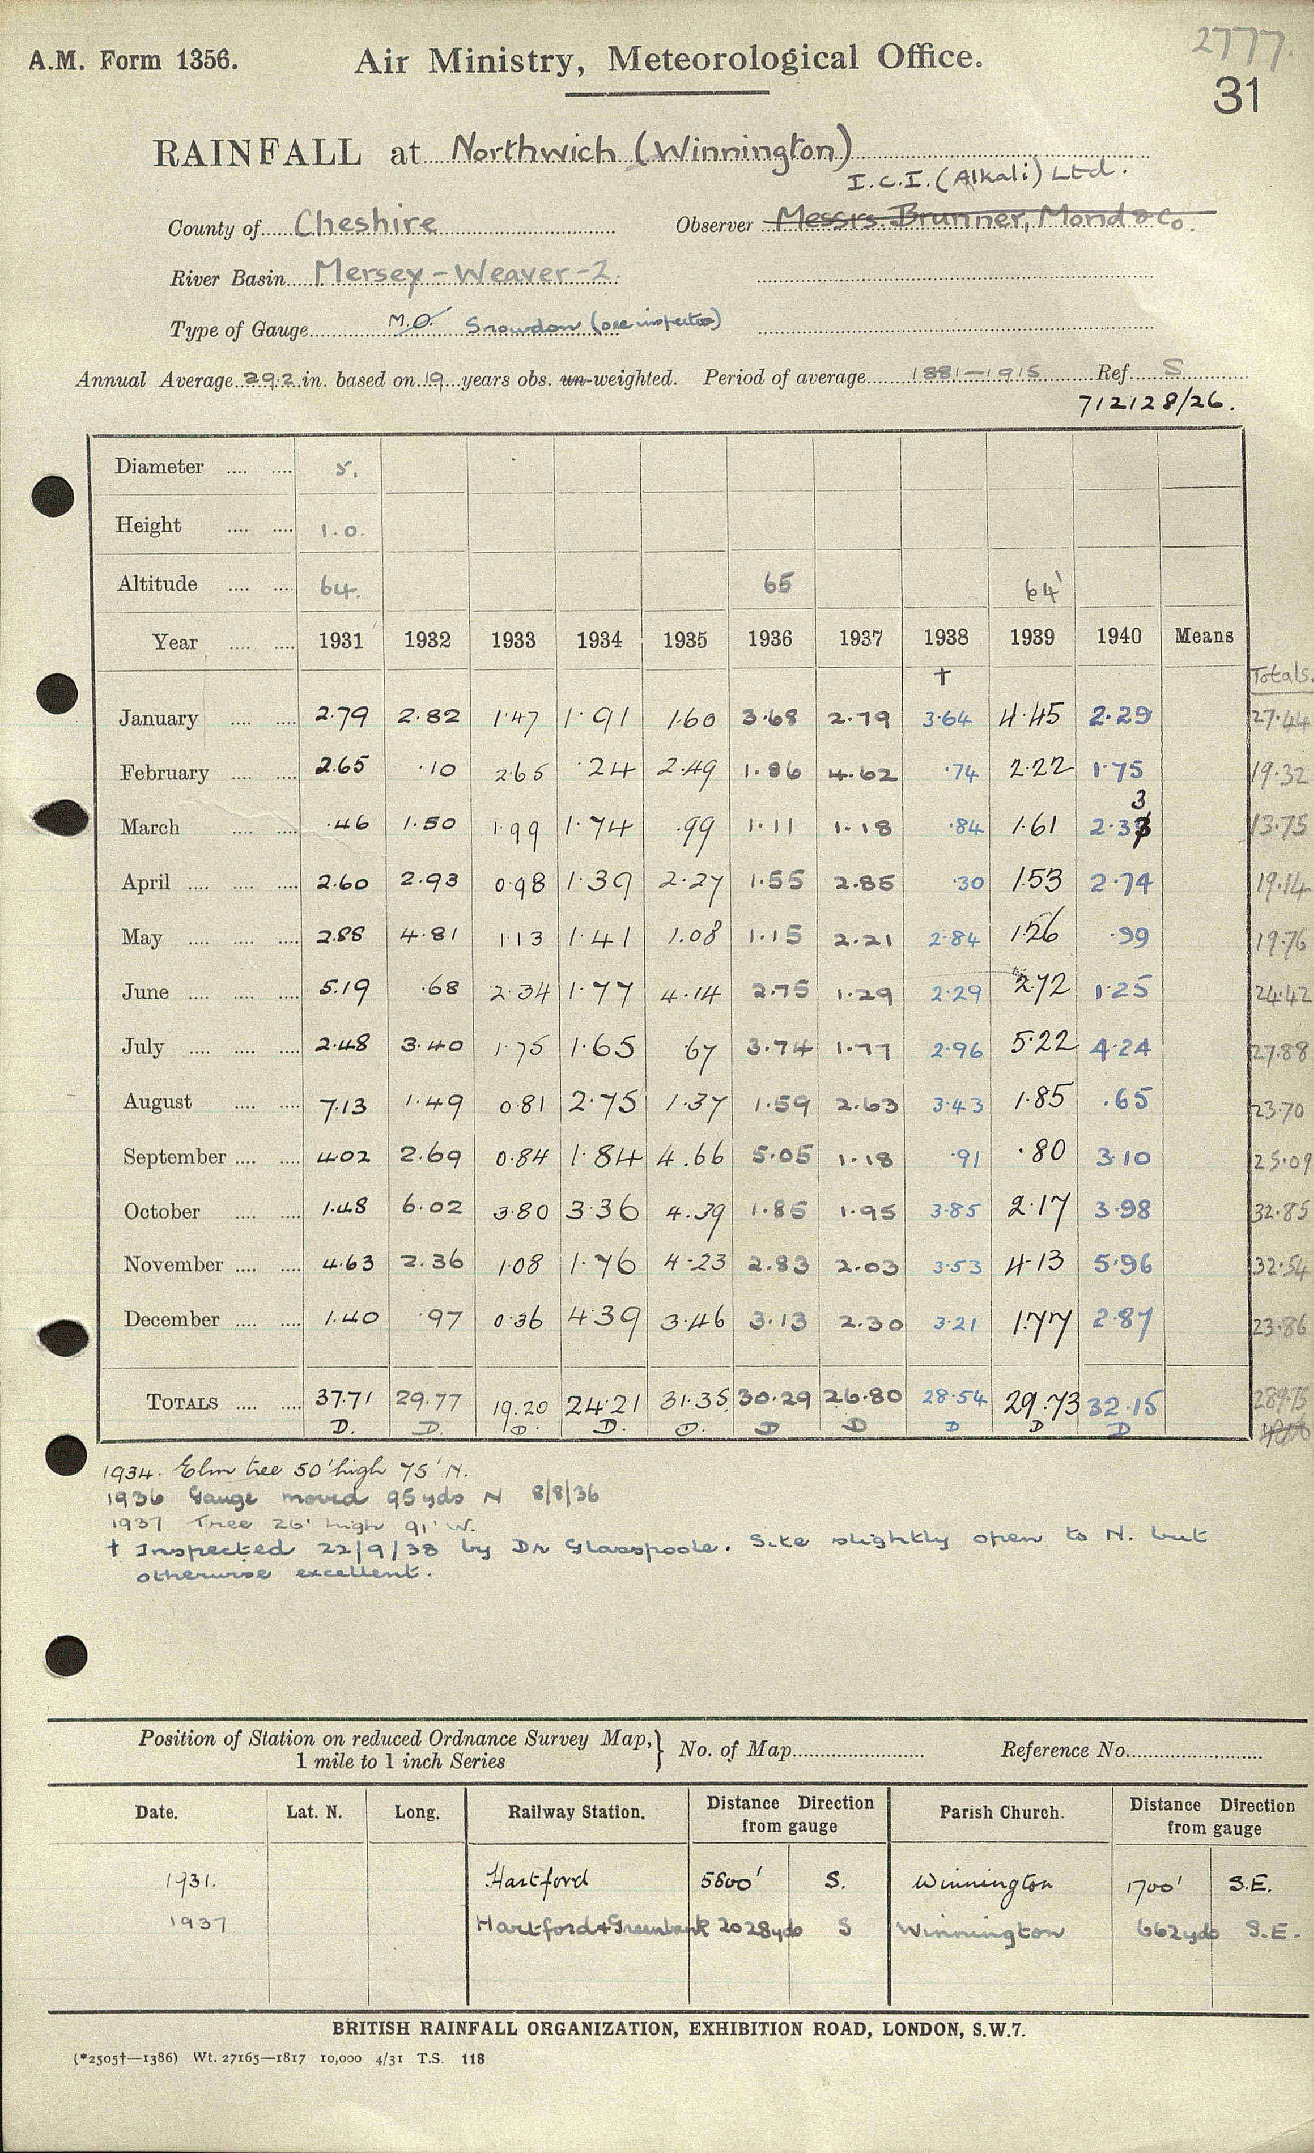 2777.
A.M. Form 1356. Air Ministry, Meteorological Office.
31
RAINFALL at Northwich (Winnington)
I.C.I. (Alkali) Ltd.
County of Cheshire Observer Messrs. Brunner, Mond & Co.
River Basin Mersey - Weaver - 2.
Type of Gauge M.O. Snowdon (see inspection)
Annual Average 29.2 in. based on 19 years obs. un-weighted. Period of average 1881-1915 Ref. S
712128/26.
Diameter .... .... 5.
Height .... .... 1.0.
Altitude .... .... 64. 65 64'
Year .... .... 1931 1932 1933 1934 1935 1936 1937 1938 1939 1940 Means
† Totals.
January .... .... 2.79 2.82 1.47 1.91 1.60 3.68 2.79 3.64 4.45 2.29 27.44
February .... .... 2.65 .10 2.65 .24 2.49 1.86 4.62 .74 2.22 1.75 19.32
3
March .... .... .46 1.50 1.99 1.74 .99 1.11 1.18 .84 1.61 2.33 13.75
April .... .... .... 2.60 2.93 0.98 1.39 2.27 1.55 2.85 .30 1.53 2.74 19.14
May .... .... .... 2.88 4.81 1.13 1.41 1.08 1.15 2.21 2.84 1.26 .99 19.76
June .... .... .... 5.19 .68 2.34 1.77 4.14 2.75 1.29 2.29 2.72 1.25 24.42
July .... .... .... 2.48 3.40 1.75 1.65 .67 3.74 1.77 2.96 5.22 4.24 27.88
August .... .... 7.13 1.49 0.81 2.75 1.37 1.59 2.63 3.43 1.85 .65 23.70
September .... .... 4.02 2.69 0.84 1.84 4.66 5.05 1.18 .91 .80 3.10 25.09
October .... .... 1.48 6.02 3.80 3.36 4.39 1.85 1.95 3.85 2.17 3.98 32.85
November .... .... 4.63 2.36 1.08 1.76 4.23 2.83 2.03 3.53 4.13 5.96 32.54
December .... .... 1.40 .97 0.36 4.39 3.46 3.13 2.30 3.21 1.77 2.87 23.86
TOTALS .... .... 37.71 29.77 19.20 24.21 31.35 30.29 26.80 28.54 29.73 32.15 289.75
D. D. D. D. D. D D D D D
1934. Elm tree 50' high 75' N.
1936 Gauge moved 95 yds N 8/8/36
1937 Tree 26' high 91' W.
† Inspected 22/9/38 by Dr Glasspoole. Site slightly open to N. but
otherwise excellent.
Position of Station on reduced Ordnance Survey Map,} No. of Map Reference No.
1 mile to 1 inch Series
Date. Lat. N. Long. Railway Station. Distance Direction from gauge Parish Church. Distance Direction from gauge
1931. Hartford 5800' S. Winnington 1700' S.E.
1937 Hartford & Greenbank 2028 yds S Winnington 662 yds S.E.
BRITISH RAINFALL ORGANIZATION, EXHIBITION ROAD, LONDON, S.W.7.
(*2505†—1386) Wt. 27165—1817 10,000 4/31 T.S. 118